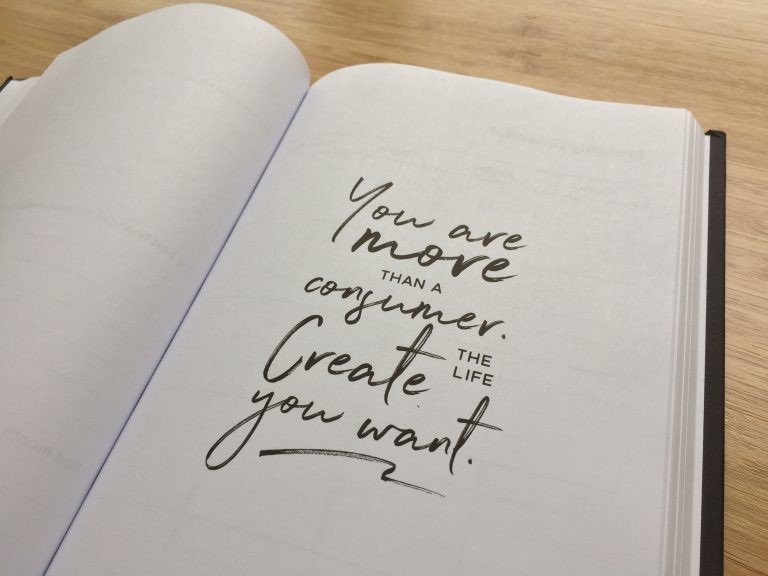 You are
more
THAN A
consumer.
Create THE
LIFE
you want.